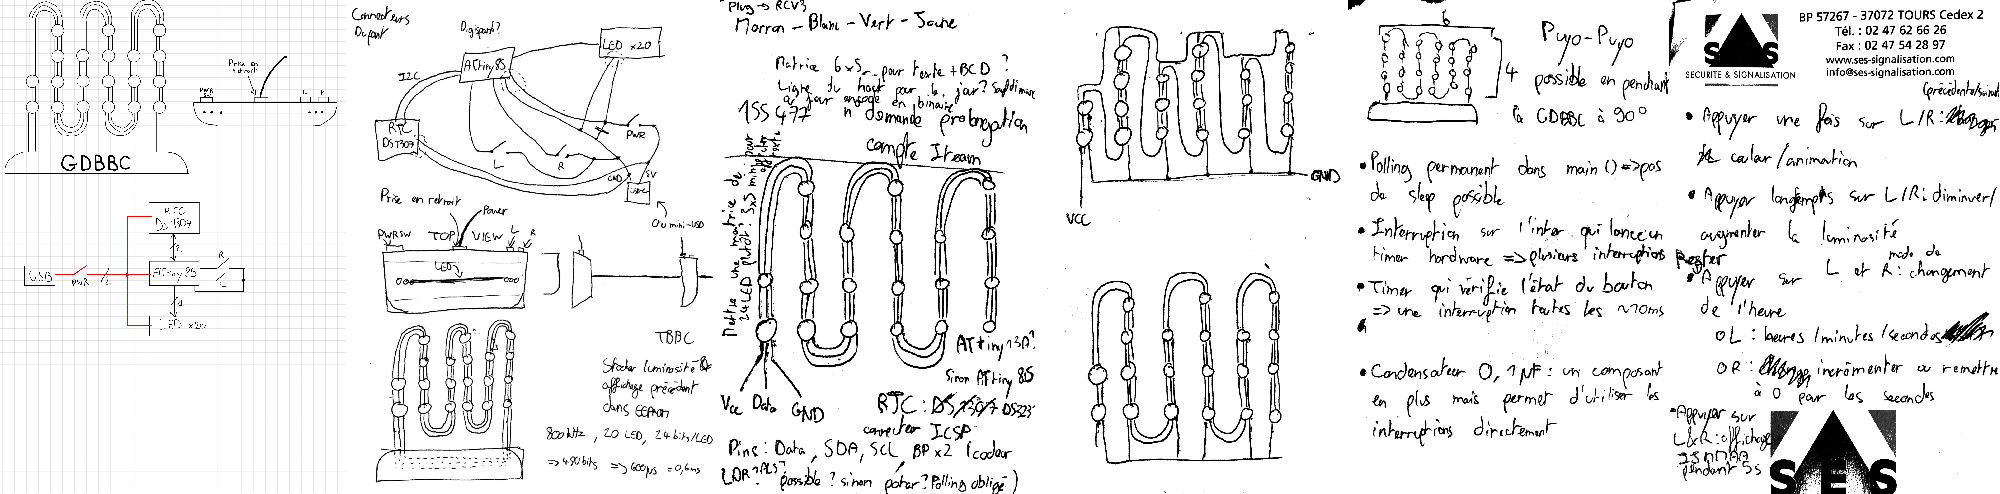 Prise en
retrait
PWR
L R
GDBBC
RTC
DS1307
ATtiny85
R
L
PWR
LED x20
Connecteurs
Dupont
Digispark?
LED x20
ATtiny85
I2C
RTC
DS1307
PWR
L
R
GND
5V
USBC
Ou mini-USB
Prise en retrait
Power
PWRSW
TOP VIEW
L R
LED
TBBC
Stocker luminosité &
affichage précédent
dans EEPROM
800kHz, 20 LED, 24 bits/LED
=> 480 bits => 600µs = 0,6ms
Plug -> RCV3
Marron - Blanc - Vert - Jaune
Matrice 6x5 pour texte + BCD ?
Ligne du haut pour
155 477 n demande prolongation
compte Iteam
Mettre une matrice de
24 LED plutôt?
ATtiny13A?
Sinon ATtiny 85
Vcc Data GND
RTC: DS1307
connecter ICSP
Pins: Data, SDA, SCL, BP x2 (codeur
possible ? sinon potar? Polling obligé)
LDR? ALS?
VCC
GND
6
4
Puyo-Puyo
possible en pendant
la GDBBC à 90°
• Polling permanent dans main() => pas
de sleep possible
• Interruption sur l'inter qui lance un
timer hardware => plusieurs interruptions
• Timer qui vérifie l'état du bouton
=> une interruption toutes les ~10ms
• Condensateur 0,1µF : un composant
en plus mais permet d'utiliser les
interruptions directement
SES
SECURITE & SIGNALISATION
BP 57267 - 37072 TOURS Cedex 2
Tél. : 02 47 62 66 26
Fax : 02 47 54 28 97
www.ses-signalisation.com
info@ses-signalisation.com
• Appuyer une fois sur L/R:
color/animation
• Appuyer longtemps sur L/R: diminuer/
augmenter la luminosité
• Appuyer sur L et R: changement
mode de
de l'heure
o L : heures/minutes/secondes
o R : incrémenter ou remettre
à 0 pour les secondes
• Appuyer sur
L&R: affichage
pendant 5s
SES